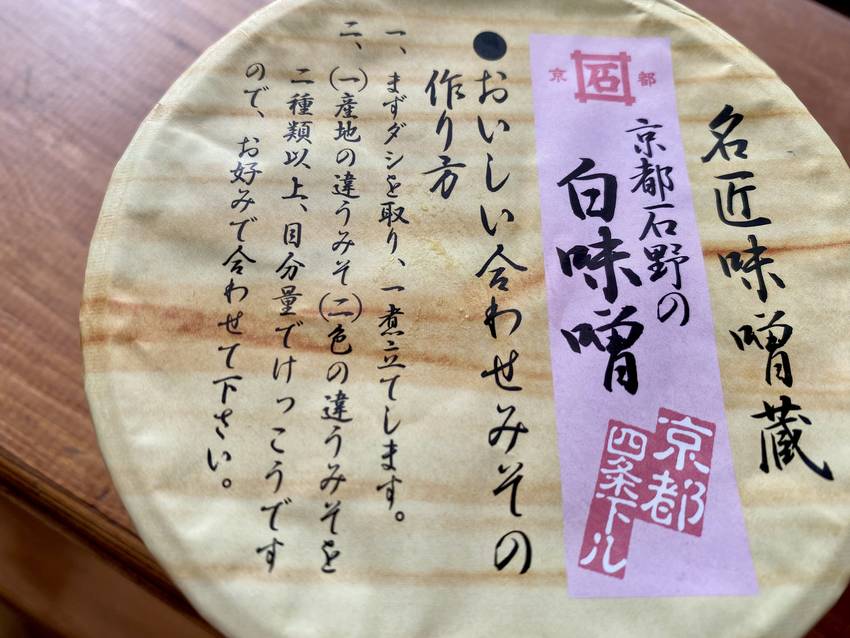 名匠味噌蔵
京 石 都
京都石野の
白味噌
京都
四条下ル
●おいしい合わせみその
作り方
一、まずダシを取り、一煮立てします。
二、(一)産地の違うみそ(二)色の違うみそを
二種類以上、目分量でけっこうです
ので、お好みで合わせて下さい。